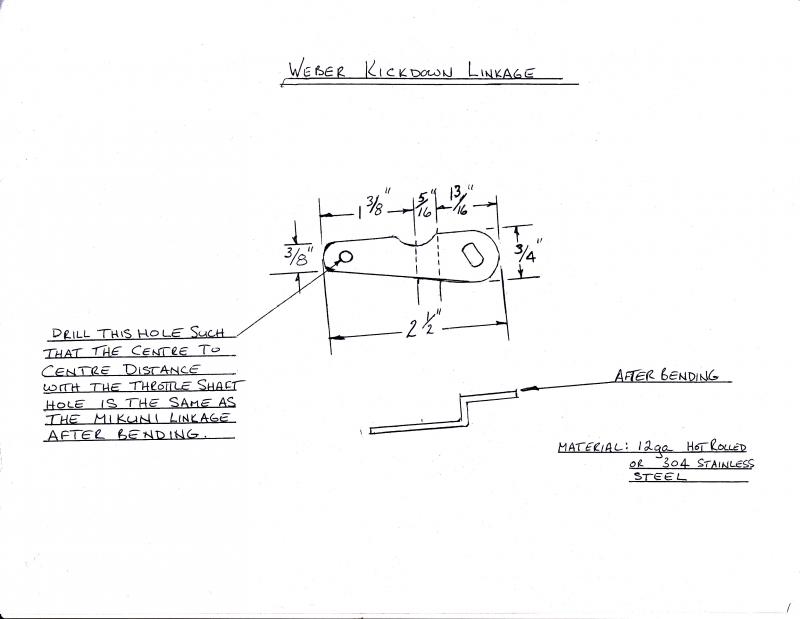 WEBER KICKDOWN LINKAGE
1 3/8" 5/16" 13/16"
3/8"
3/4"
2 1/2"
DRILL THIS HOLE SUCH
THAT THE CENTRE TO
CENTRE DISTANCE
WITH THE THROTTLE SHAFT
HOLE IS THE SAME AS
THE MIKUNI LINKAGE
AFTER BENDING.
AFTER BENDING
MATERIAL: 12ga HOT ROLLED
OR 304 STAINLESS
STEEL